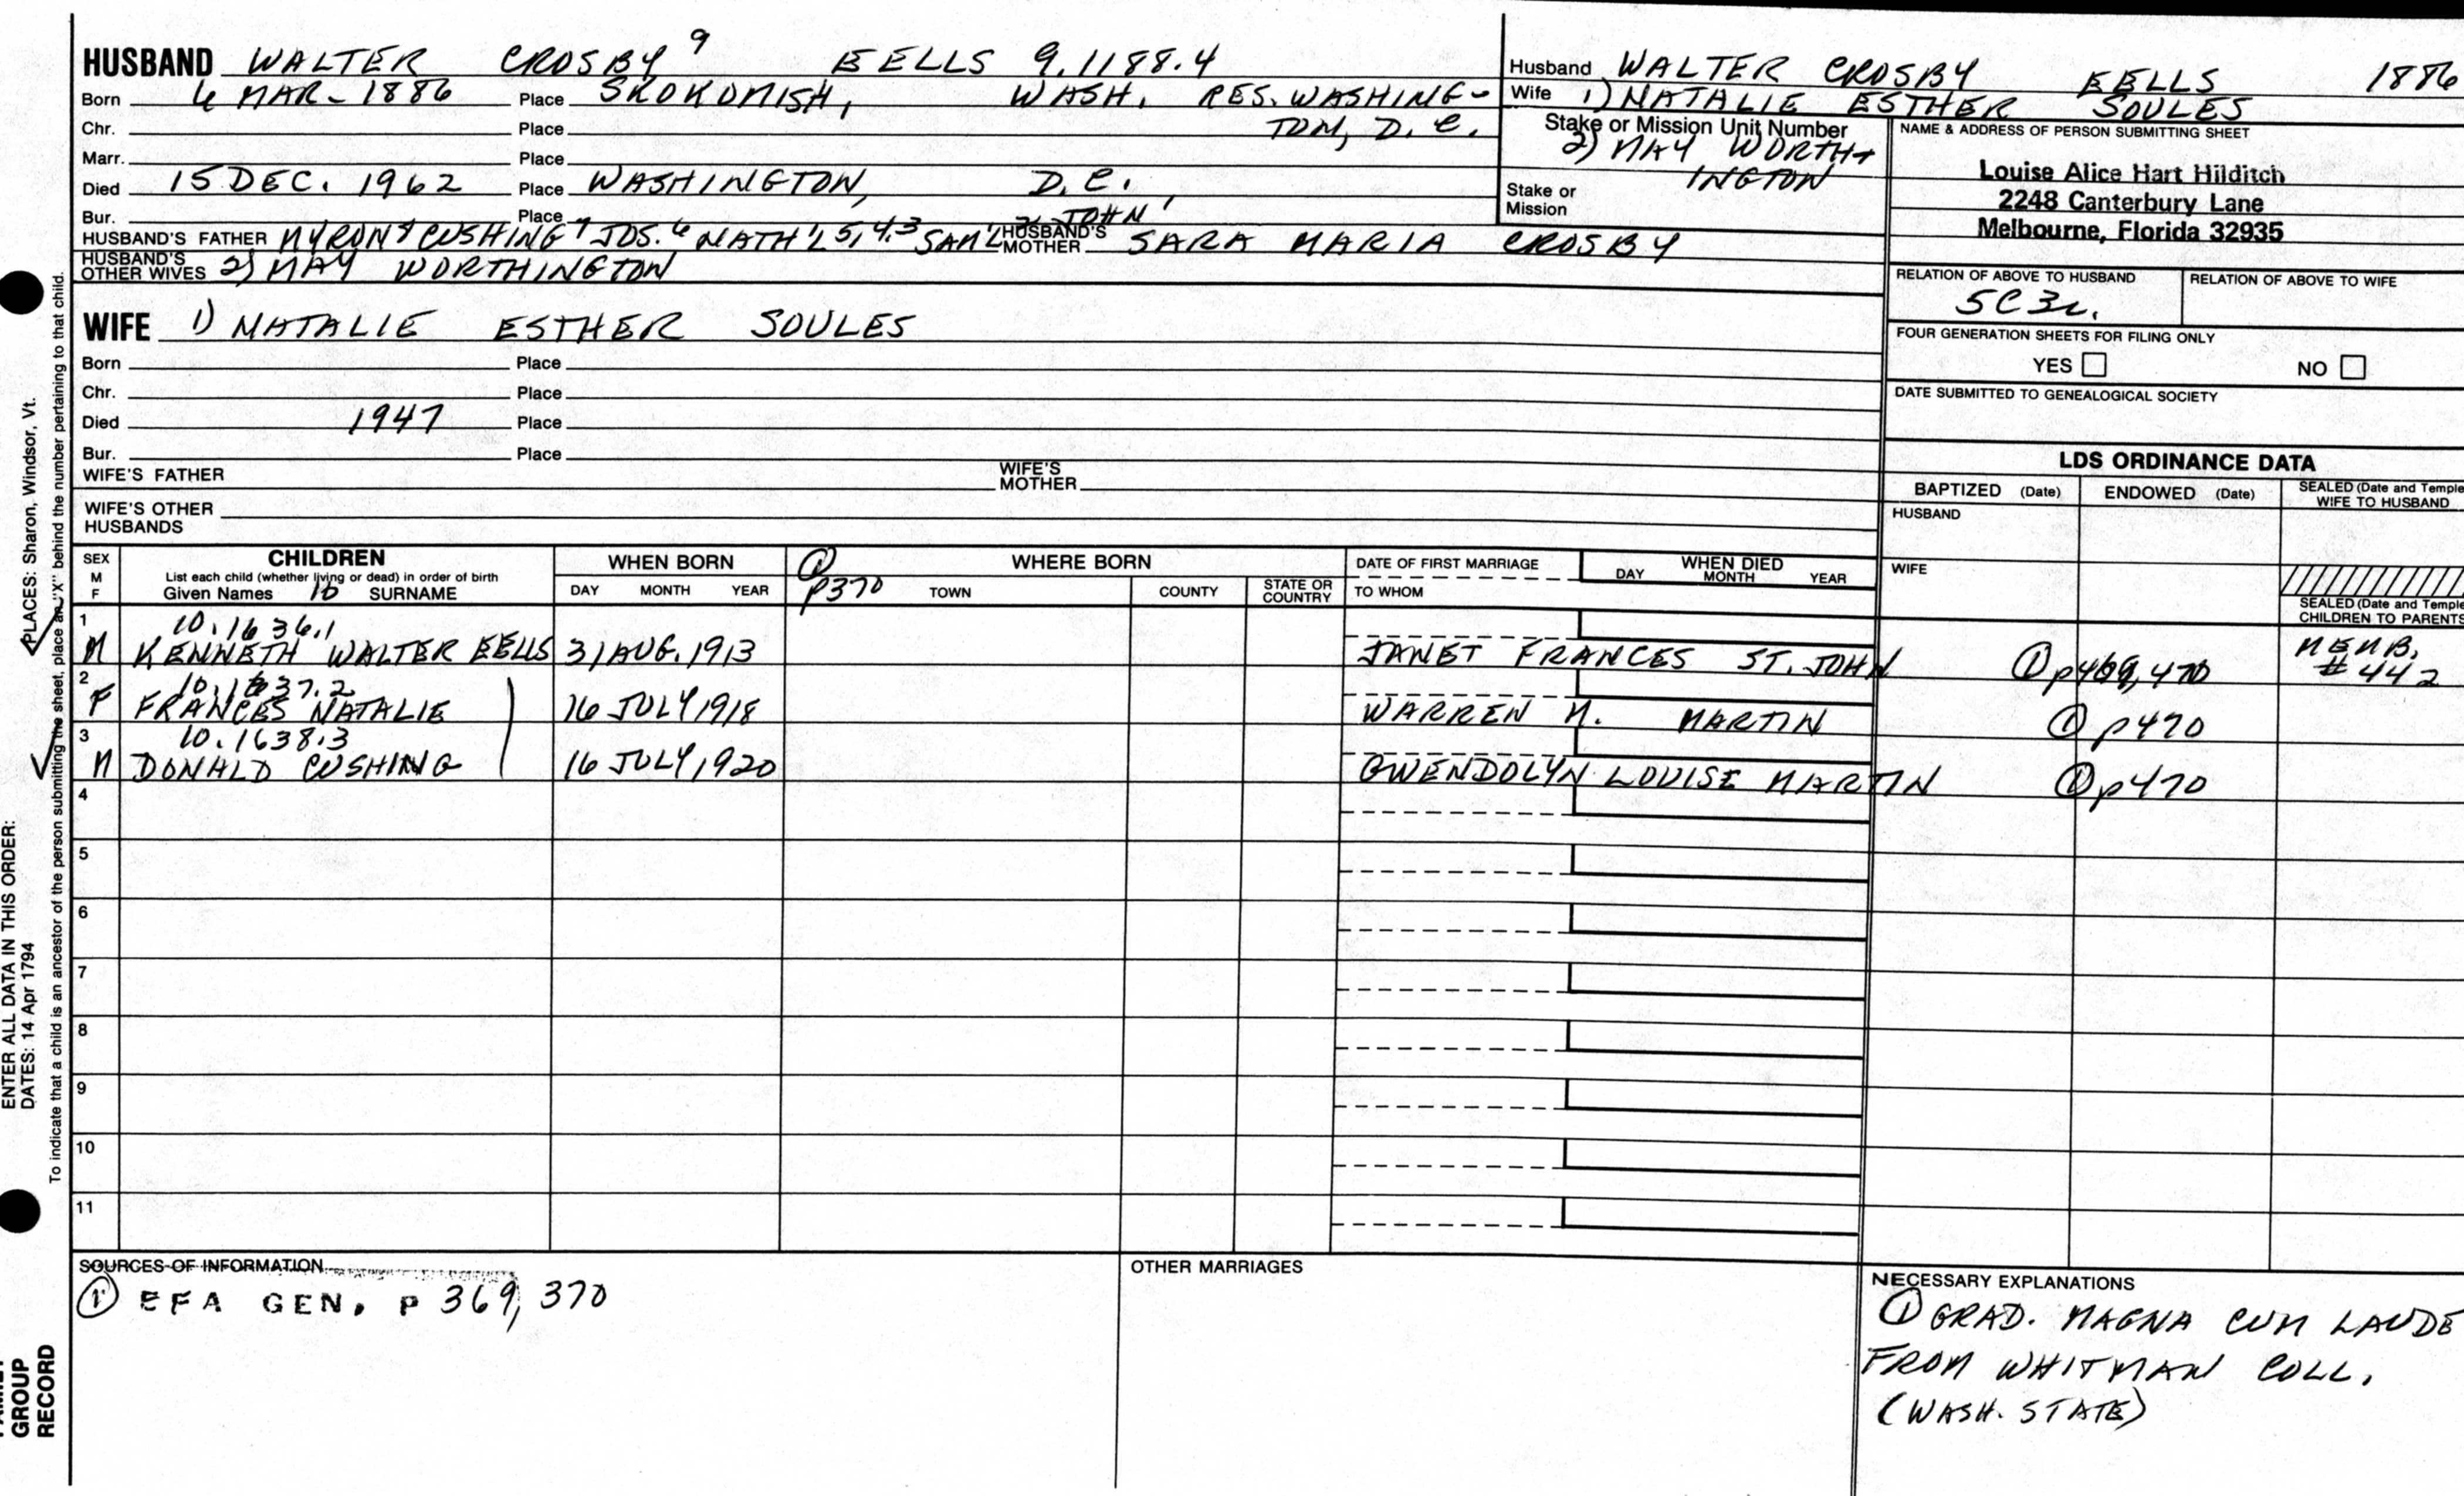 HUSBAND WALTER CROSBY 9 EELLS 9.1188.4
Born 6 MAR - 1886 Place SKOKOMISH, WASH. RES. WASHING-
Chr. Place TON, D.C.
Marr. Place
Died 15 DEC. 1962 Place WASHINGTON, D.C.
Bur. Place
HUSBAND'S FATHER MYRON 8 CUSHING 7 JOS. 6 NATH'L 5,4,3 SAM'L 2 JOHN 1 HUSBAND'S MOTHER SARA MARIA CROSBY
HUSBAND'S OTHER WIVES 2) MAY WORTHINGTON
WIFE 1) NATALIE ESTHER SOULES
Born Place
Chr. Place
Died 1947 Place
Bur. Place
WIFE'S FATHER WIFE'S MOTHER
WIFE'S OTHER HUSBANDS
Husband WALTER CROSBY EELLS 1886
Wife 1) NATALIE ESTHER SOULES
Stake or Mission Unit Number
2) MAY WORTH-
INGTON
Stake or Mission
NAME & ADDRESS OF PERSON SUBMITTING SHEET
Louise Alice Hart Hilditch
2248 Canterbury Lane
Melbourne, Florida 32935
RELATION OF ABOVE TO HUSBAND RELATION OF ABOVE TO WIFE
5C3r.
FOUR GENERATION SHEETS FOR FILING ONLY
YES NO
DATE SUBMITTED TO GENEALOGICAL SOCIETY
LDS ORDINANCE DATA
BAPTIZED (Date) ENDOWED (Date) SEALED (Date and Temple
WIFE TO HUSBAND
HUSBAND
WIFE
SEALED (Date and Temple
CHILDREN TO PARENTS
SEX M F CHILDREN WHEN BORN ① P370 WHERE BORN DATE OF FIRST MARRIAGE WHEN DIED
List each child (whether living or dead) in order of birth
Given Names 10 SURNAME DAY MONTH YEAR TOWN COUNTY STATE OR COUNTRY TO WHOM DAY MONTH YEAR
1 10.1636.1
M KENNETH WALTER EELLS 31 AUG. 1913 JANET FRANCES ST. JOHN ① p469, 470 MEMB. # 442
2 10.1637.2
F FRANCES NATALIE 16 JULY 1918 WARREN M. MARTIN ① p470
3 10.1638.3
M DONALD CUSHING 16 JULY 1920 GWENDOLYN LOUISE MARTIN ① p470
4
5
6
7
8
9
10
11
SOURCES OF INFORMATION
① EFA GEN. P 369, 370
OTHER MARRIAGES
NECESSARY EXPLANATIONS
① GRAD. MAGNA CUM LAUDE
FROM WHITMAN COLL.
(WASH. STATE)
PLACES: Sharon, Windsor, Vt.
ENTER ALL DATA IN THIS ORDER:
DATES: 14 Apr 1794
To indicate that a child is an ancestor of the person submitting the sheet, place an "X" behind the number pertaining to that child.
GROUP
RECORD